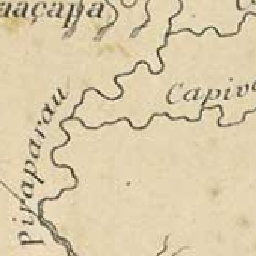 aaçapa
Capiv
Piraparau